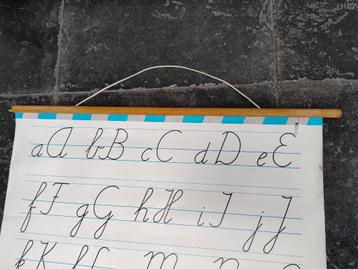 aA bB cC dD eE
fF gG hH iI jJ
kK lL M